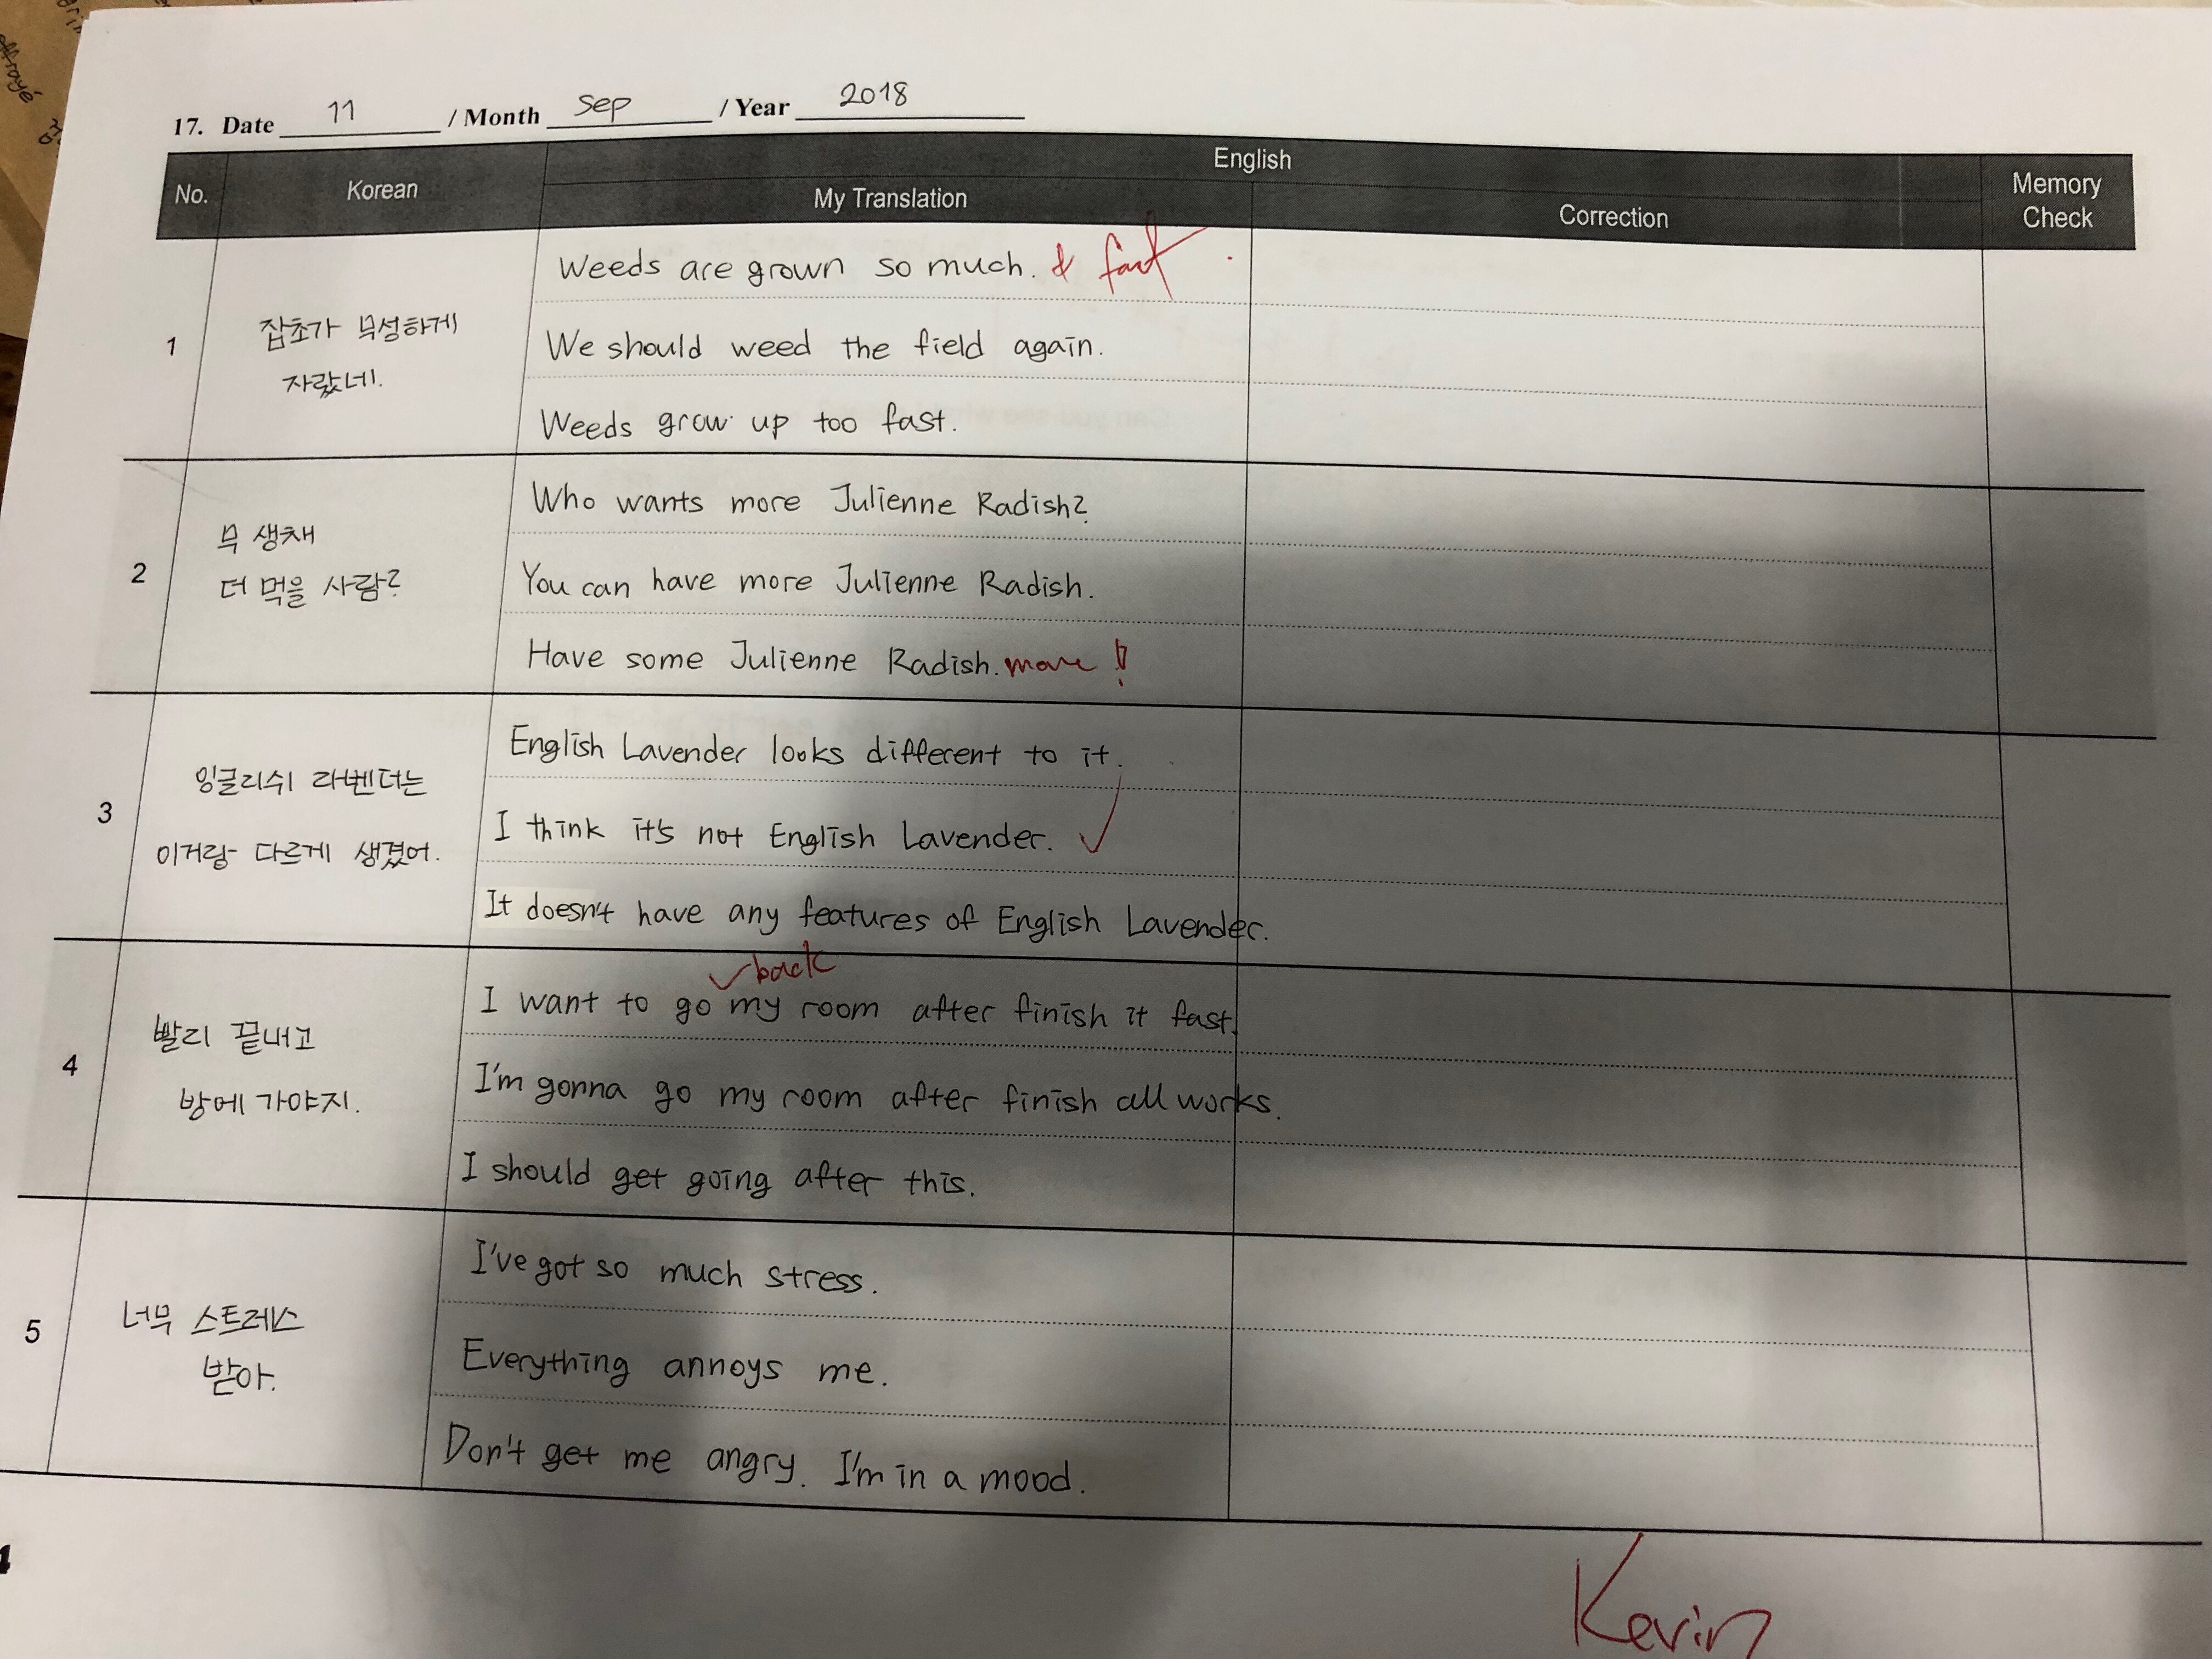 17. Date 11 / Month Sep / Year 2018
No. Korean English Memory Check
My Translation Correction
1
잡초가 무성하게
자랐네.
Weeds are grown so much. & fast
We should weed the field again.
Weeds grow up too fast.
2
무 생채
더 먹을 사람?
Who wants more Julienne Radish?
You can have more Julienne Radish.
Have some Julienne Radish. more!
3
잉글리쉬 라벤더는
이거랑 다르게 생겼어.
English Lavender looks different to it.
I think it's not English Lavender.
It doesn't have any features of English Lavender.
4
빨리 끝내고
방에 가야지.
back
I want to go my room after finish it fast.
I'm gonna go my room after finish all works.
I should get going after this.
5
너무 스트레스
받아.
I've got so much stress.
Everything annoys me.
Don't get me angry. I'm in a mood.
Kevin